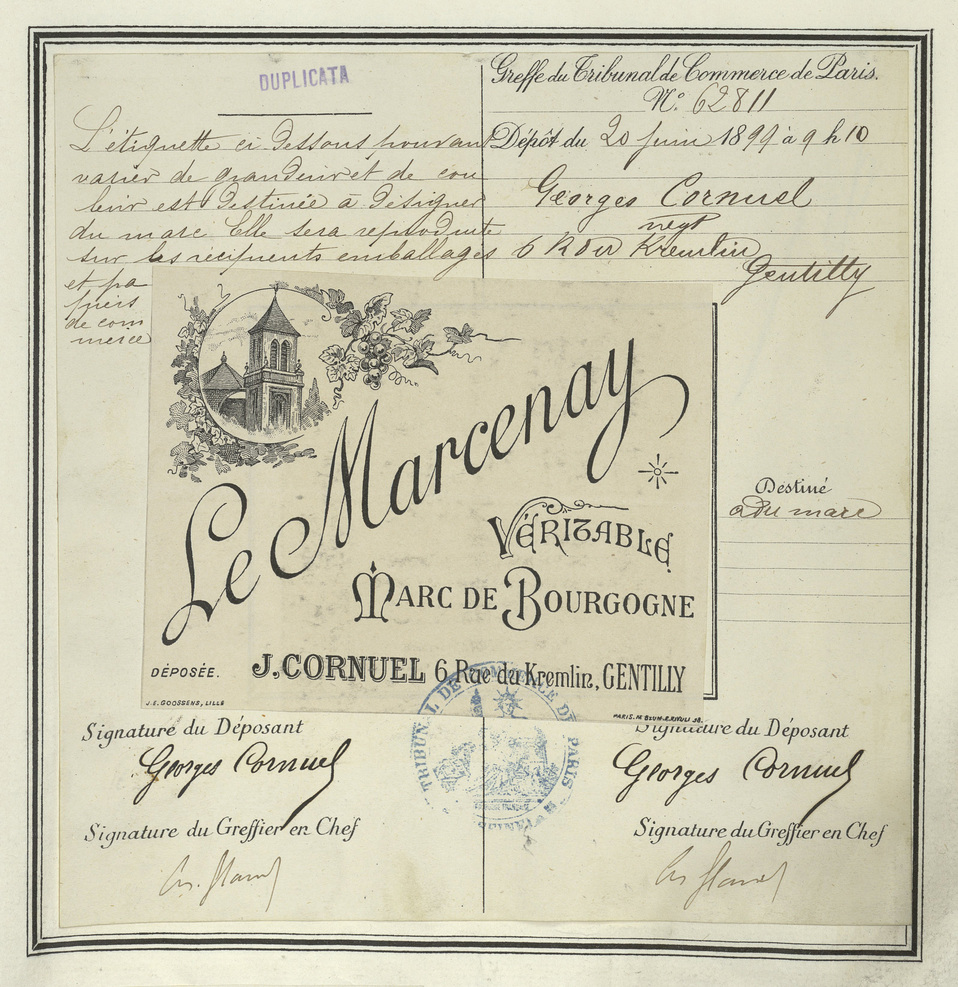 DUPLICATA
L'étiquette ci dessous pouvant
varier de grandeur et de cou
leur est destinée à désigner
du marc Elle sera reproduite
sur les récipients emballages
et pa
piers
de com
merce
Greffe du Tribunal de Commerce de Paris.
N° 62811
Dépôt du 20 juin 1899 à 9 h 10
Georges Cornuel
negt
6 R du Kremlin
Gentilly
Destiné
à du marc
Le Marcenay
VÉRITABLE
MARC DE BOURGOGNE
DÉPOSÉE.
J. CORNUEL 6 Rue du Kremlin, GENTILLY
J.E. GOOSSENS, LILLE
TRIBUNAL DE COMMERCE DE PARIS
Signature du Déposant
Georges Cornuel
Signature du Greffier en Chef
Signature du Déposant
Georges Cornuel
Signature du Greffier en Chef